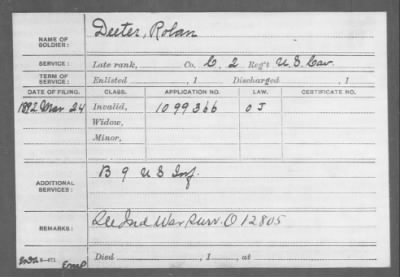 NAME OF SOLDIER: Deeter, Rolan
SERVICE: Late rank, Co. C, 2 Reg't U.S. Cav.
TERM OF SERVICE: Enlisted , 1 Discharged , 1
DATE OF FILING. CLASS. APPLICATION NO. LAW. CERTIFICATE NO.
1892 Mar 24 Invalid, 1099366
Widow,
Minor,
ADDITIONAL SERVICES: B 9 U S Inf.
REMARKS: Ind War Surv. O 12805
Died , 1 , at